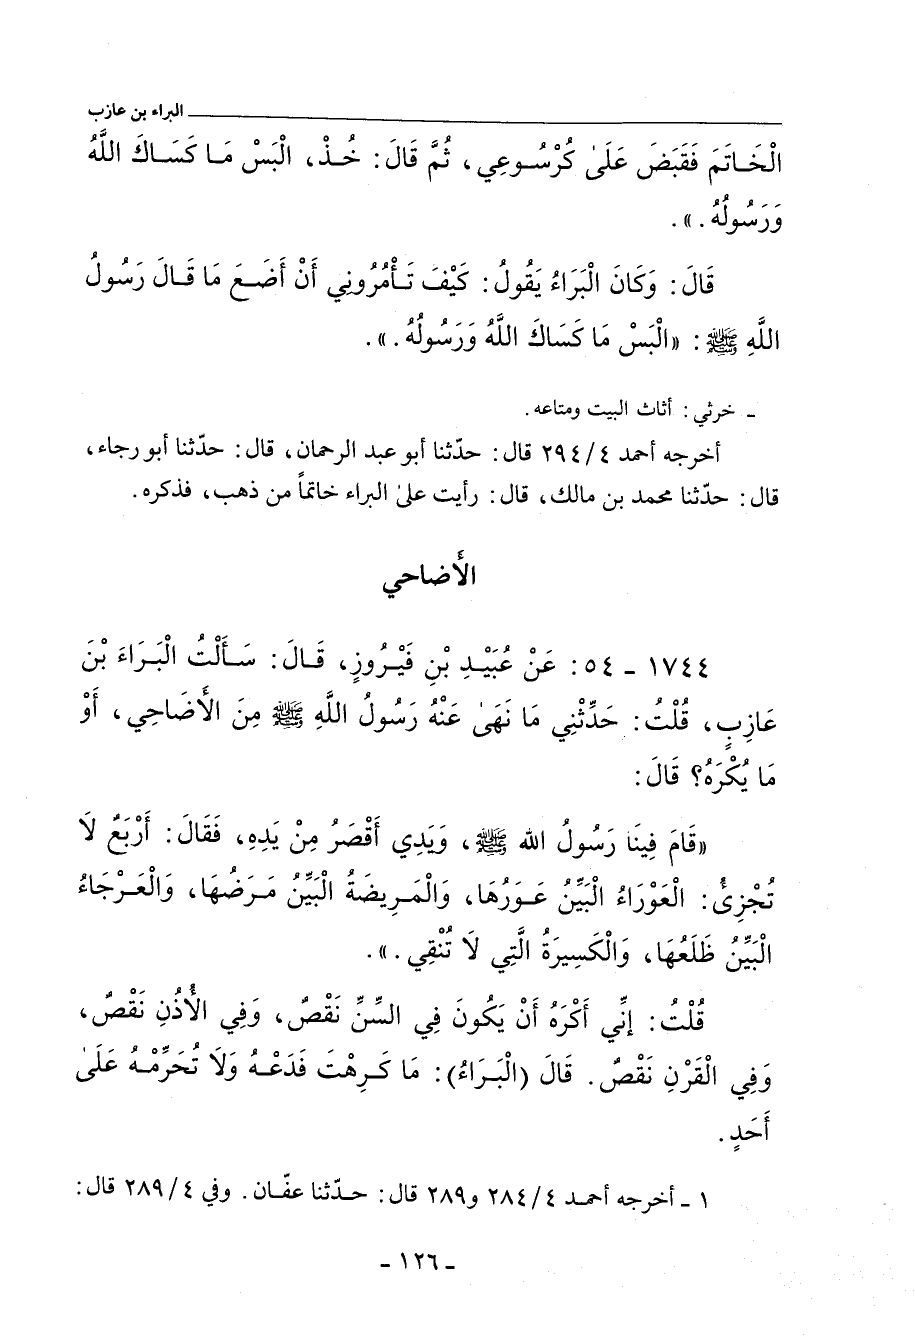 البراء بن عازب
الْخَاتَمَ فَقَبَضَ عَلَىٰ كُرْسُوعِي، ثُمَّ قَالَ: خُذْ، الْبَسْ مَا كَسَاكَ اللَّهُ
وَرَسُولُهُ.».
قَالَ: وَكَانَ الْبَرَاءُ يَقُولُ: كَيْفَ تَأْمُرُونِي أَنْ أَضَعَ مَا قَالَ رَسُولُ
اللَّهِ ﷺ: «الْبَسْ مَا كَسَاكَ اللَّهُ وَرَسُولُهُ.».
ـ خرثي: أثاث البيت ومتاعه.
أخرجه أحمد ٢٩٤/٤ قال: حدّثنا أبو عبد الرحمان، قال: حدّثنا أبو رجاء،
قال: حدّثنا محمد بن مالك، قال: رأيت علىٰ البراء خاتماً من ذهب، فذكره.
الأَضاحي
١٧٤٤ ـ ٥٤: عَنْ عُبَيْدِ بْنِ فَيْرُوزٍ، قَالَ: سَأَلْتُ الْبَرَاءَ بْنَ
عَازِبٍ، قُلْتُ: حَدِّثْنِي مَا نَهَىٰ عَنْهُ رَسُولُ اللَّهِ ﷺ مِنَ الأَضَاحِي، أَوْ
مَا يُكْرَهُ؟ قَالَ:
«قَامَ فِينَا رَسُولُ الله ﷺ، وَيَدِي أَقْصَرُ مِنْ يَدِهِ، فَقَالَ: أَرْبَعٌ لَا
تُجْزِئُ: الْعَوْرَاءُ الْبَيِّنُ عَوَرُهَا، وَالْمَرِيضَةُ الْبَيِّنُ مَرَضُهَا، وَالْعَرْجَاءُ
الْبَيِّنُ ظَلَعُهَا، وَالْكَسِيرَةُ الَّتِي لَا تُنْقِي.».
قُلْتُ: إِنِّي أَكْرَهُ أَنْ يَكُونَ فِي السِّنِّ نَقْصٌ، وَفِي الْأُذُنِ نَقْصٌ،
وَفِي الْقَرْنِ نَقْصٌ. قَالَ (الْبَرَاءُ): مَا كَرِهْتَ فَدَعْهُ وَلَا تُحَرِّمْهُ عَلَىٰ
أَحَدٍ.
١ ـ أخرجه أحمد ٢٨٤/٤ و٢٨٩ قال: حدّثنا عفّان. وفي ٢٨٩/٤ قال:
ـ ١٢٦ ـ